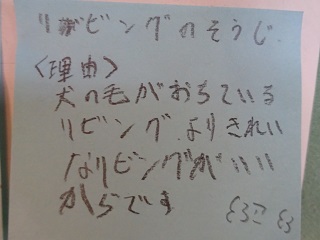 リビングのそうじ.
〈理由〉
犬の毛がおちている
リビングよりきれい
なリビングがいい
からです